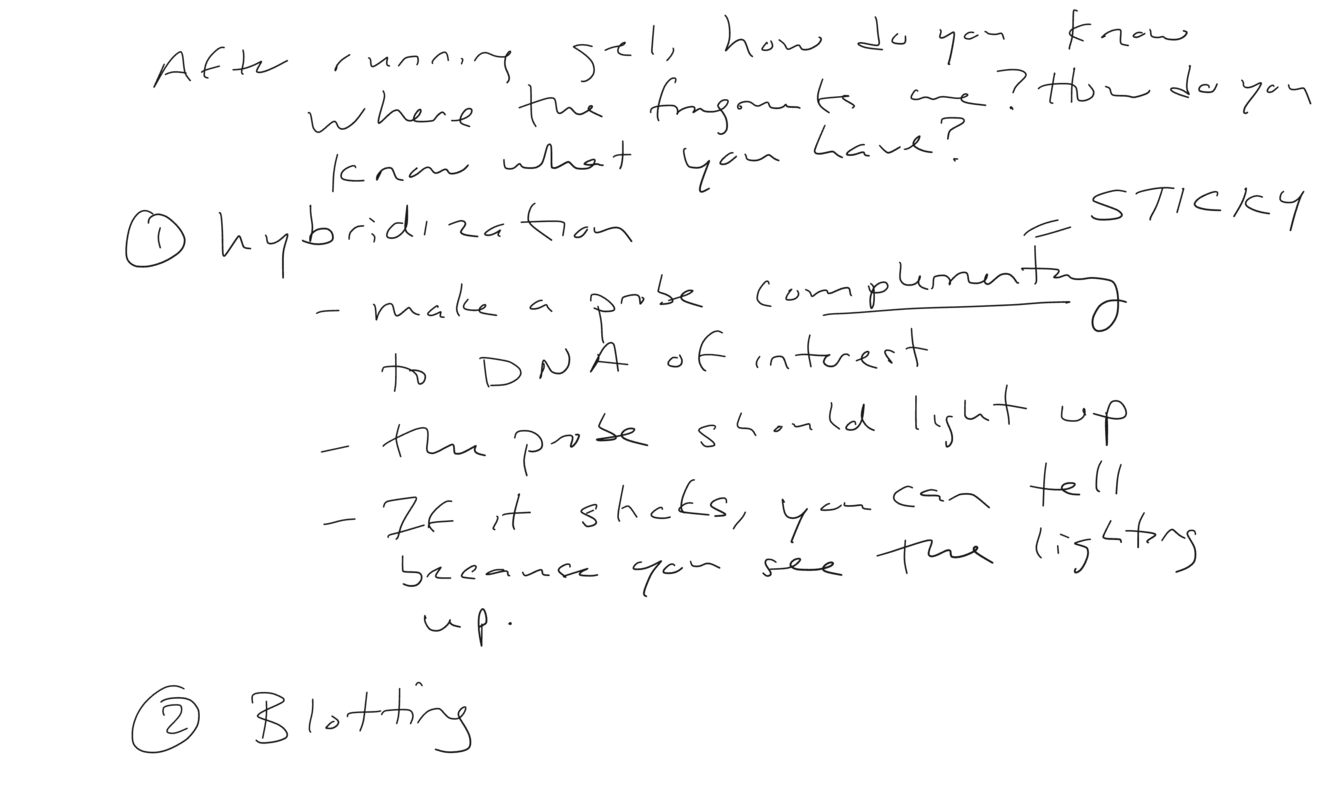 After running gel, how do you know
where the fragments are? How do you
know what you have?
① hybridization
= STICKY
- make a probe complementary
to DNA of interest
- the probe should light up
- If it sticks, you can tell
because you see the lighting
up.
② Blotting